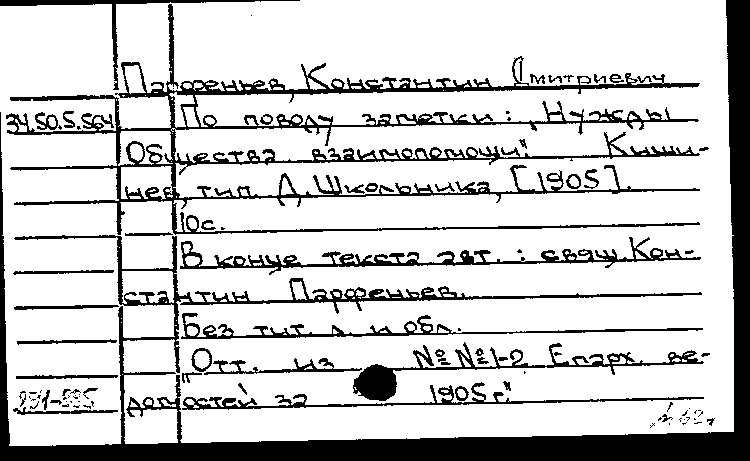 Парфеньев, Константин Дмитриевич
34.50.5.564 По поводу заметки: „Нужды
Общества взаимопомощи". Киши-
нев, тип. Д. Школьника, [1905].
10с.
В конце текста авт.: свящ. Кон-
стантин Парфеньев.
Без тит. л. и обл.
„Отт. из №№1-2 Епарх. ве-
домостей за 1905 г."